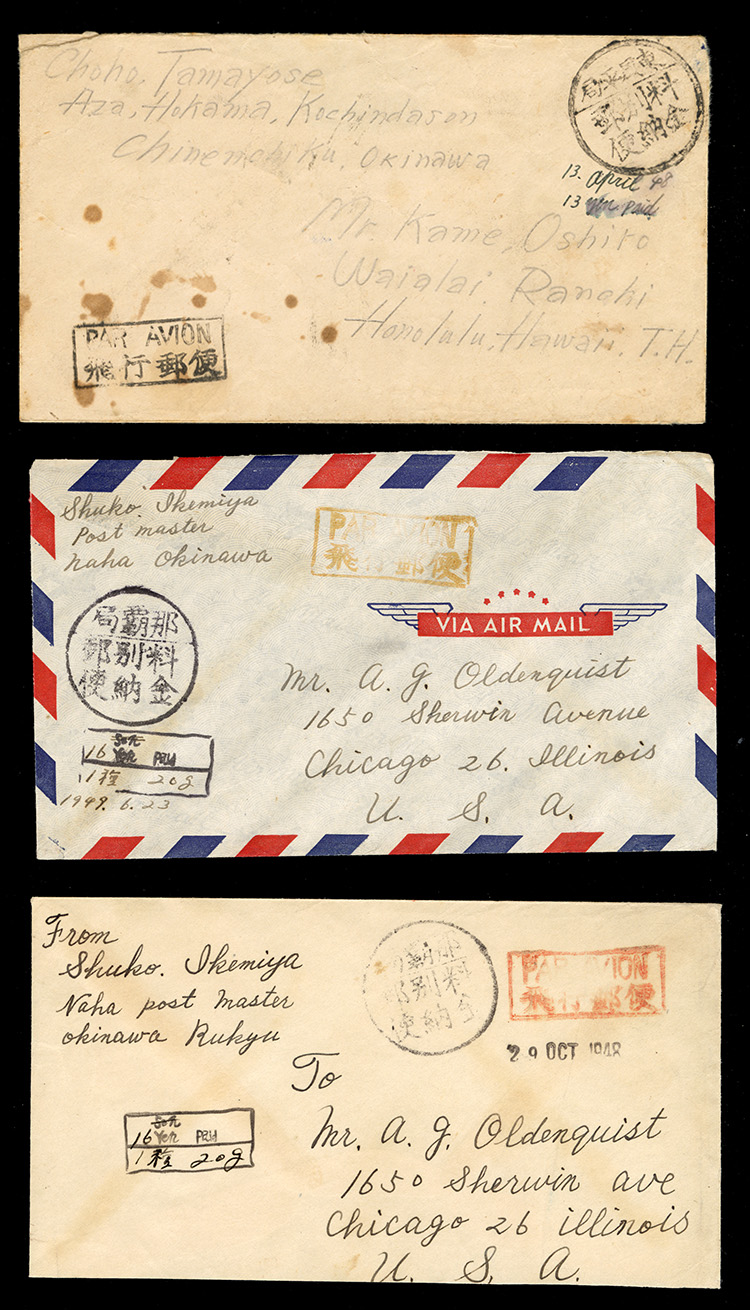 Choho. Tamayose
Aza, Hokama, Kochindason
Chinenchiku. Okinawa
東風平局
料金
別納
郵便
13. april 48
13 yen paid
Mr. Kame, Oshiro
Waialai. Ranchi
Honolulu, Hawaii. T.H.
PAR AVION
飛行郵便
Shuko. Ikemiya
Post master
naha Okinawa
PAR AVION
飛行郵便
VIA AIR MAIL
那覇局
料金
別納
郵便
Mr. A. G. Oldenquist
1650 Sherwin Avenue
Chicago 26. Illinois
U. S. A.
16 Yen Paid
1種 20g
1949. 6. 23
From
Shuko. Ikemiya
Naha post master
okinawa Rukyu
那覇局
料金
別納
郵便
PAR AVION
飛行郵便
29 OCT 1948
To
Mr. A. G. Oldenquist
1650 Sherwin ave
Chicago 26 illinois
U. S. A.
16 Yen Paid
1種 20g